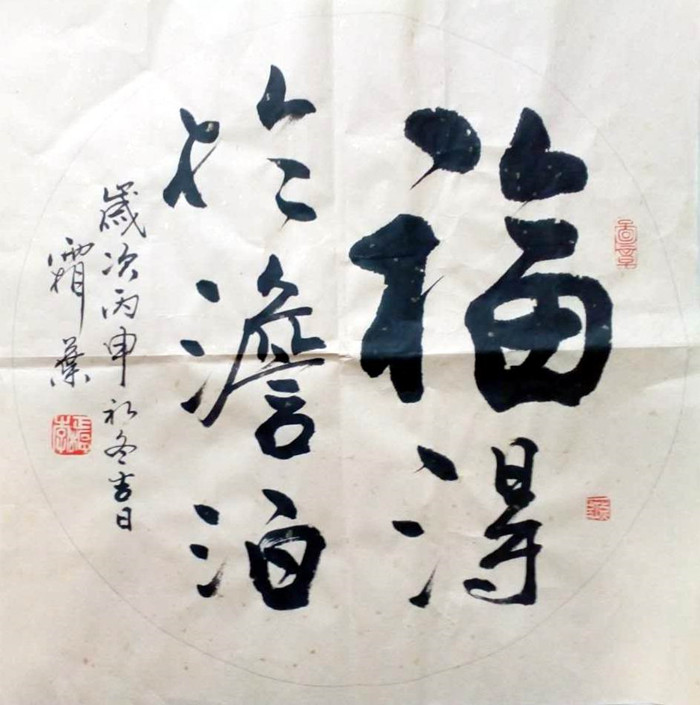 福得
於澹泊
歲次丙申初冬吉日
霜葉